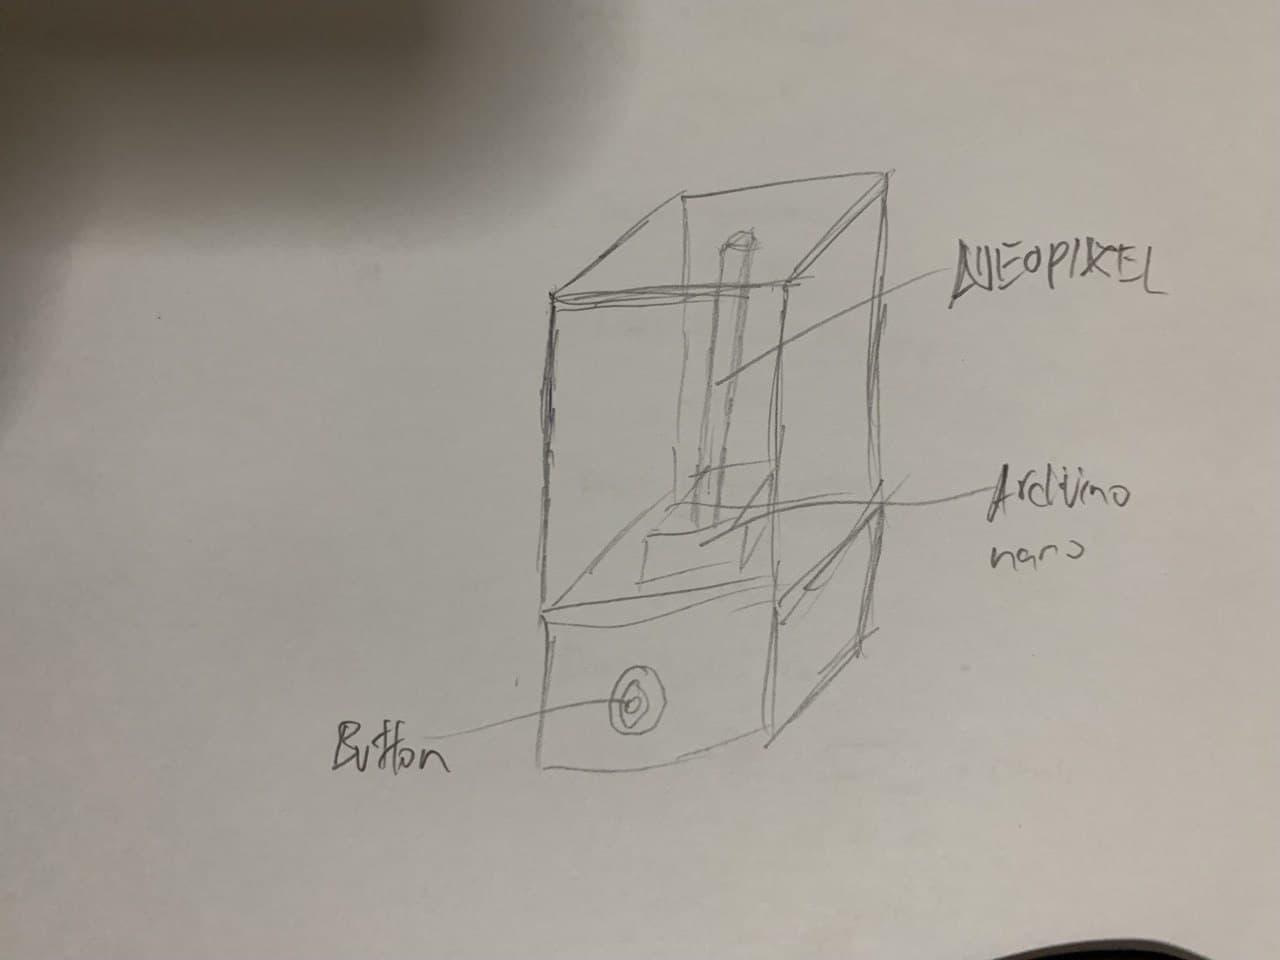 NEOPIXEL
Arduino
nano
Button